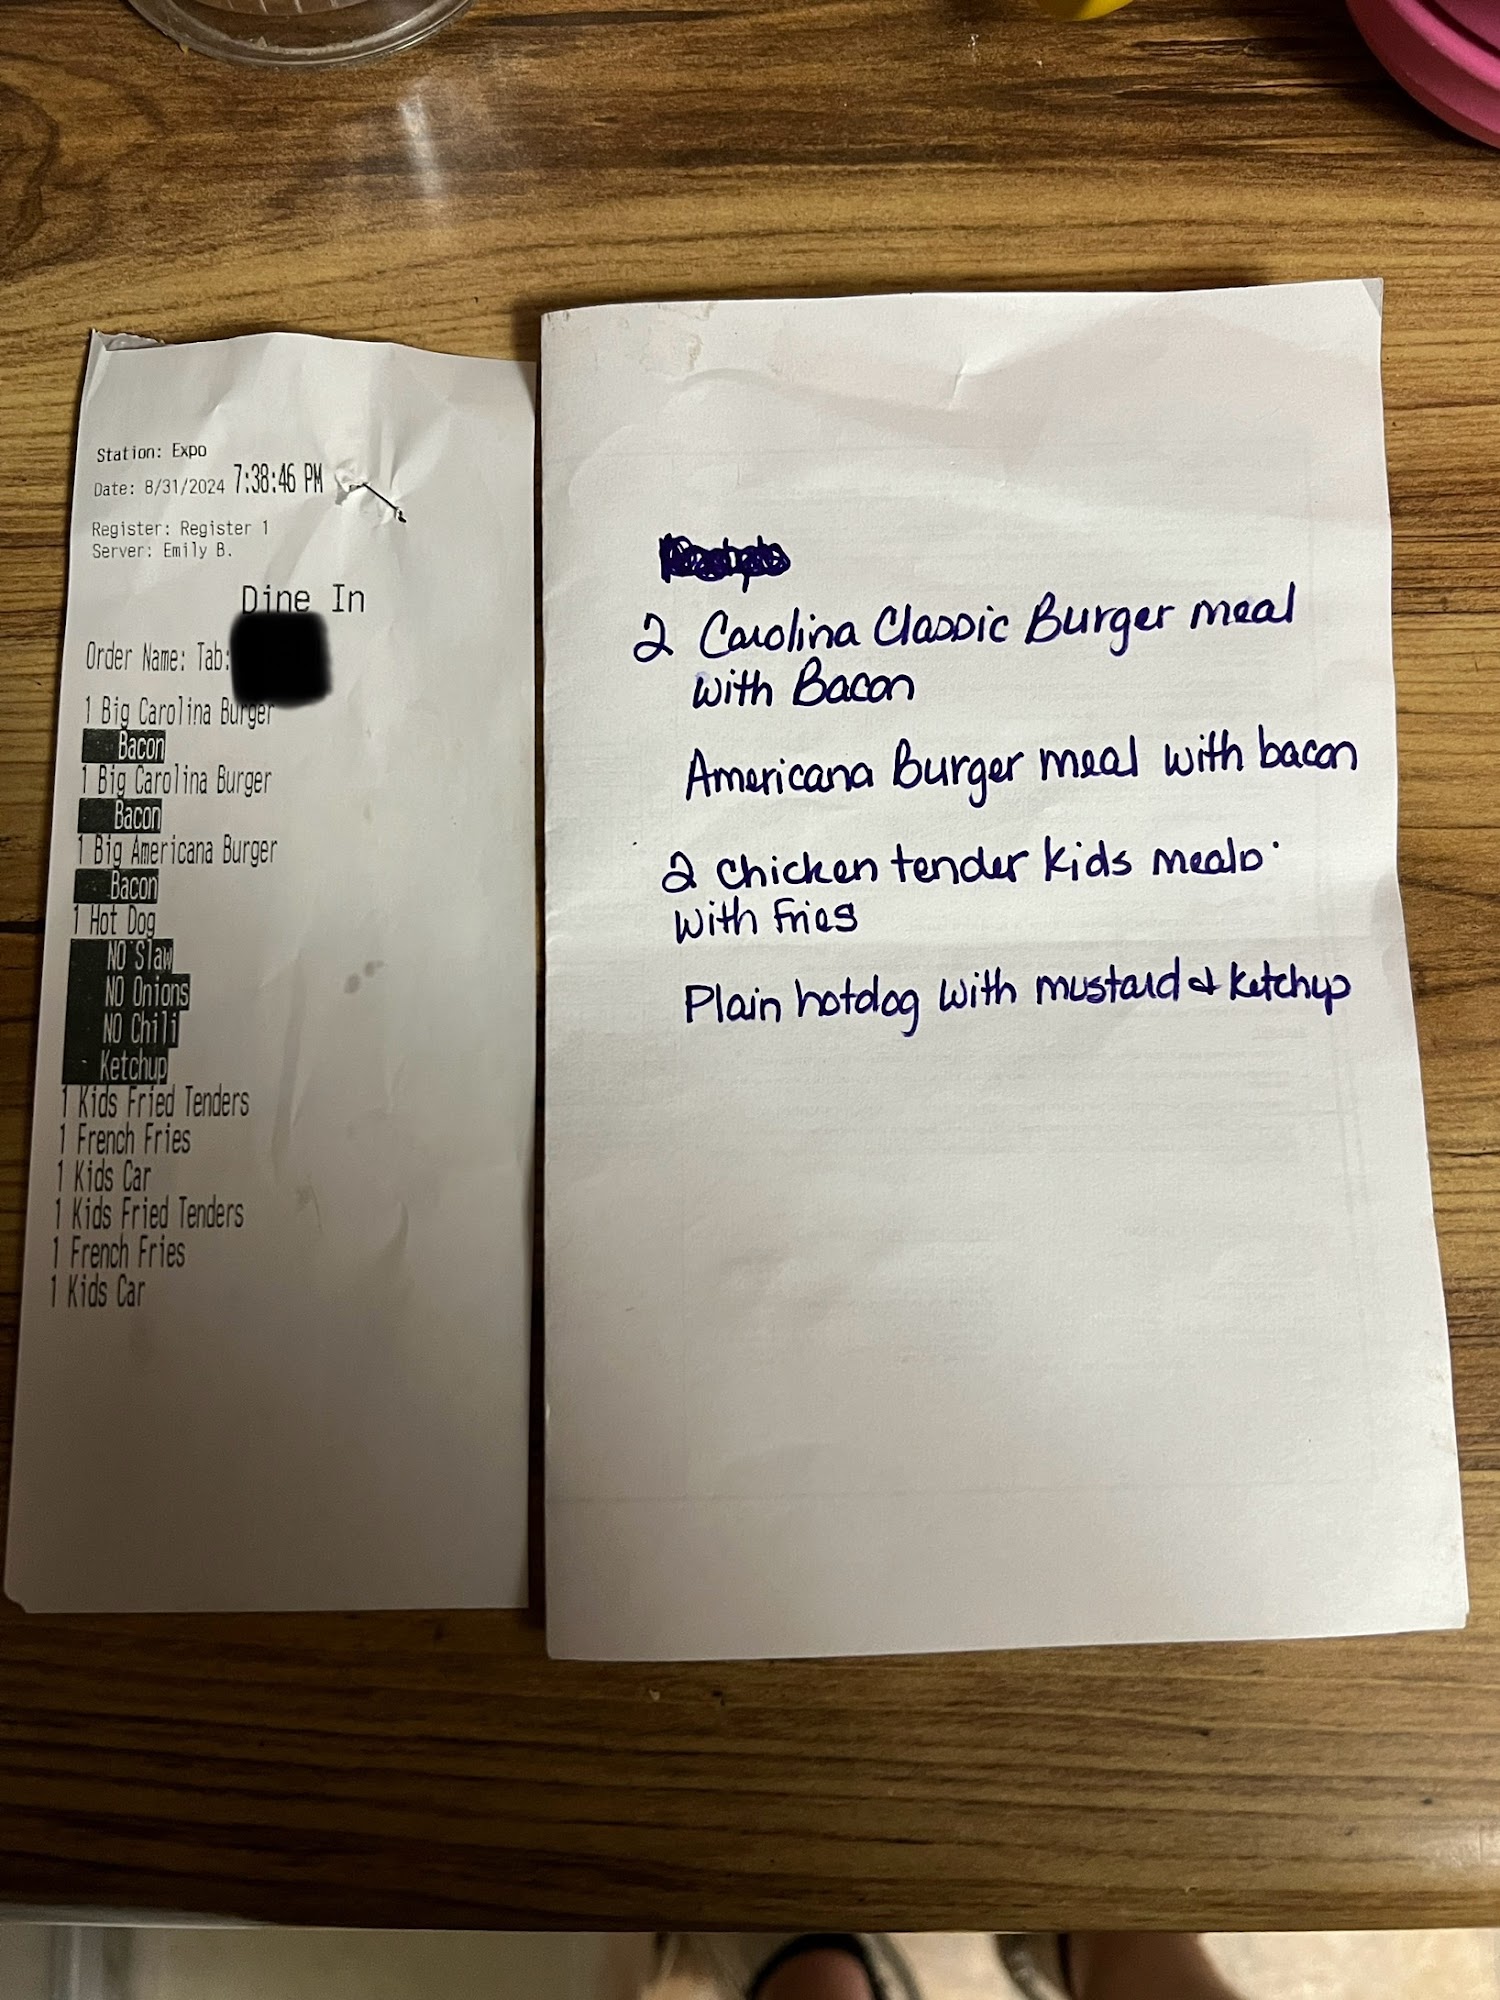 Station: Expo
Date: 8/31/2024 7:38:46 PM
Register: Register 1
Server: Emily B.
Dine In
Order Name: Tab:
1 Big Carolina Burger
Bacon
1 Big Carolina Burger
Bacon
1 Big Americana Burger
Bacon
1 Hot Dog
NO Slaw
NO Onions
NO Chili
Ketchup
1 Kids Fried Tenders
1 French Fries
1 Kids Car
1 Kids Fried Tenders
1 French Fries
1 Kids Car
2 Carolina Classic Burger meal
with Bacon
Americana Burger meal with bacon
2 chicken tender kids meals
with Fries
Plain hotdog with mustard & ketchup